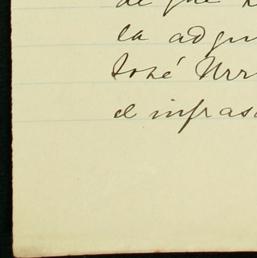 de que
la adqu
José Urr
el infras